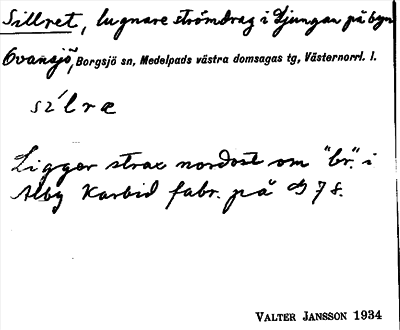 Sillret, lugnare strömdrag i Ljungan på byn
Ovansjö, Borgsjö sn, Medelpads västra domsagas tg, Västernorrl. l.
sílræ
Ligger strax nordost om "br." i
Alby Karbid fabr. på 78.
VALTER JANSSON 1934